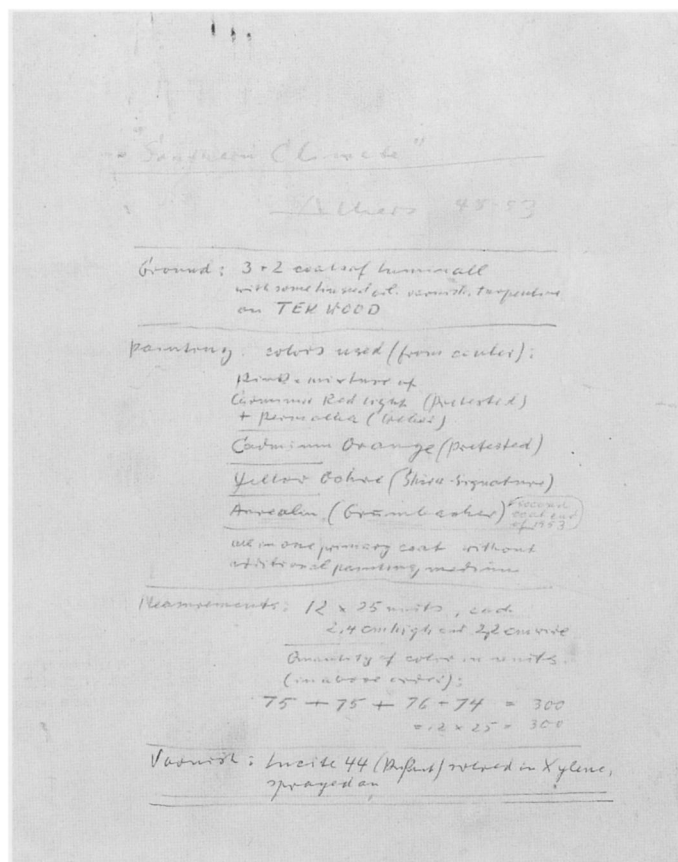 "Southern Climate"
Albers 48-53
Ground: 3 + 2 coats of
with some linseed oil, varnish, turpentine
on TEKWOOD
painting: colors used (from center):
Pink = mixture of
Red Light (Pretested)
+ Permalba (Weber)
Cadmium Orange (Pretested)
Yellow Ochre (Shiva-Signature)
Aureolin (Grumbacher) second coat end of 1953
all in one primary coat without
additional painting medium
Measurements: 12 x 25 units, each
2,4 cm high and 2,2 cm wide
Quantity of color in units
(in above order):
75 + 75 + 76 + 74 = 300
= 12 x 25 = 300
Varnish: Lucite 44 (Dupont) in Xylene,
sprayed on